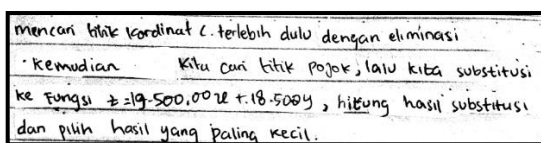 mencari titik kordinat C. terlebih dulu dengan eliminasi
· Kemudian Kita cari titik pojok, lalu kita substitusi
ke Fungsi z = 19.500.00x + 18.500y, hitung hasil substitusi
dan pilih hasil yang paling kecil.